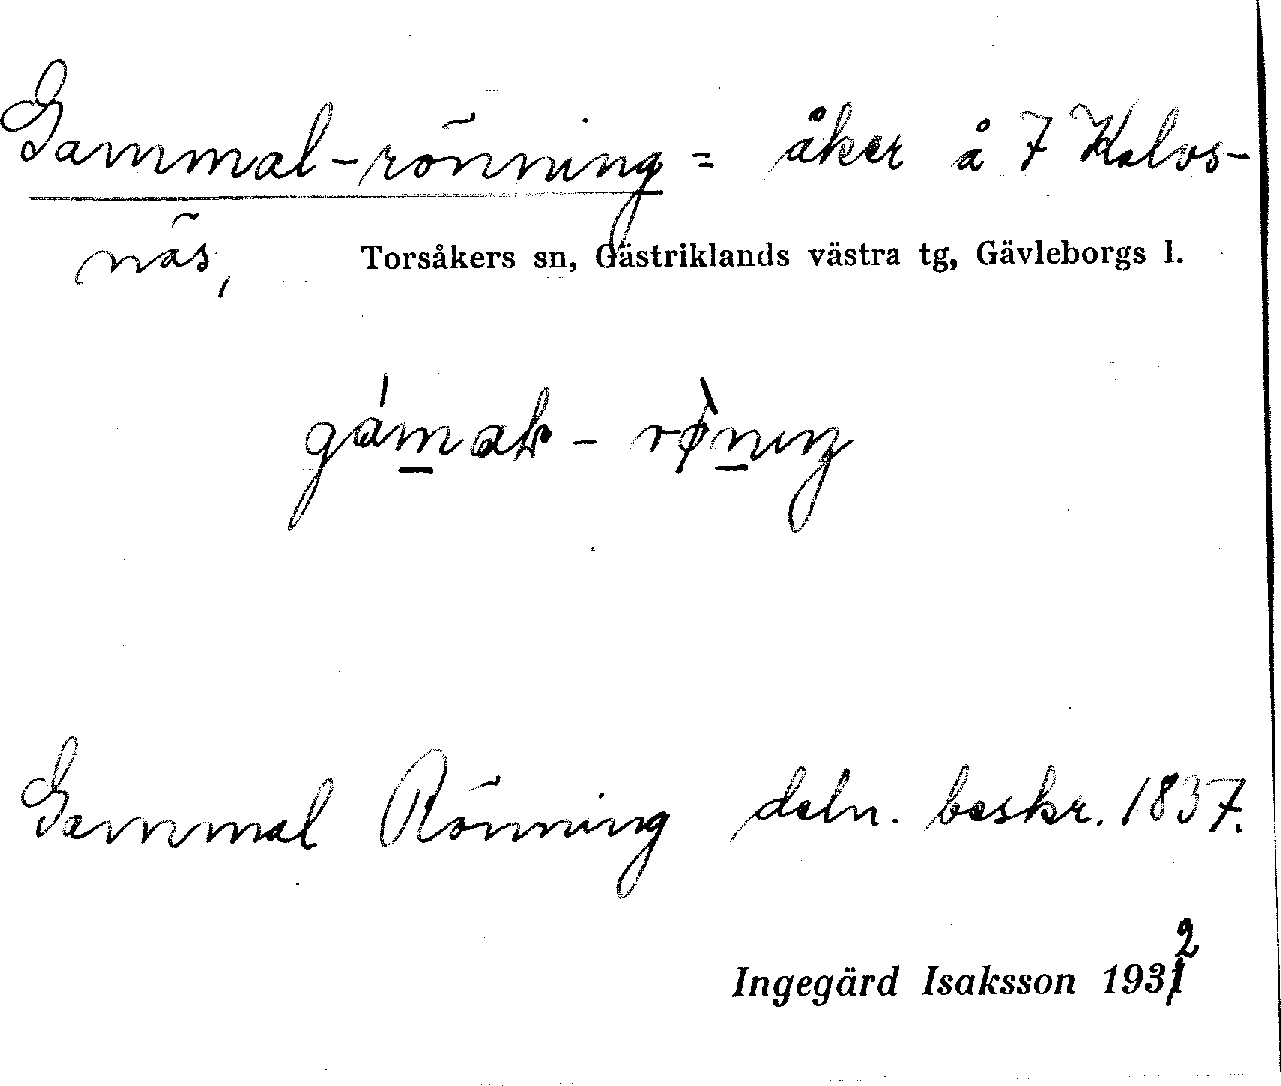 Gammal-rönning = åker å 7 Kalvs-
näs, Torsåkers sn, Gästriklands västra tg, Gävleborgs l.
Gammal Rönning deln. beskr. 1837.
Ingegärd Isaksson 1932